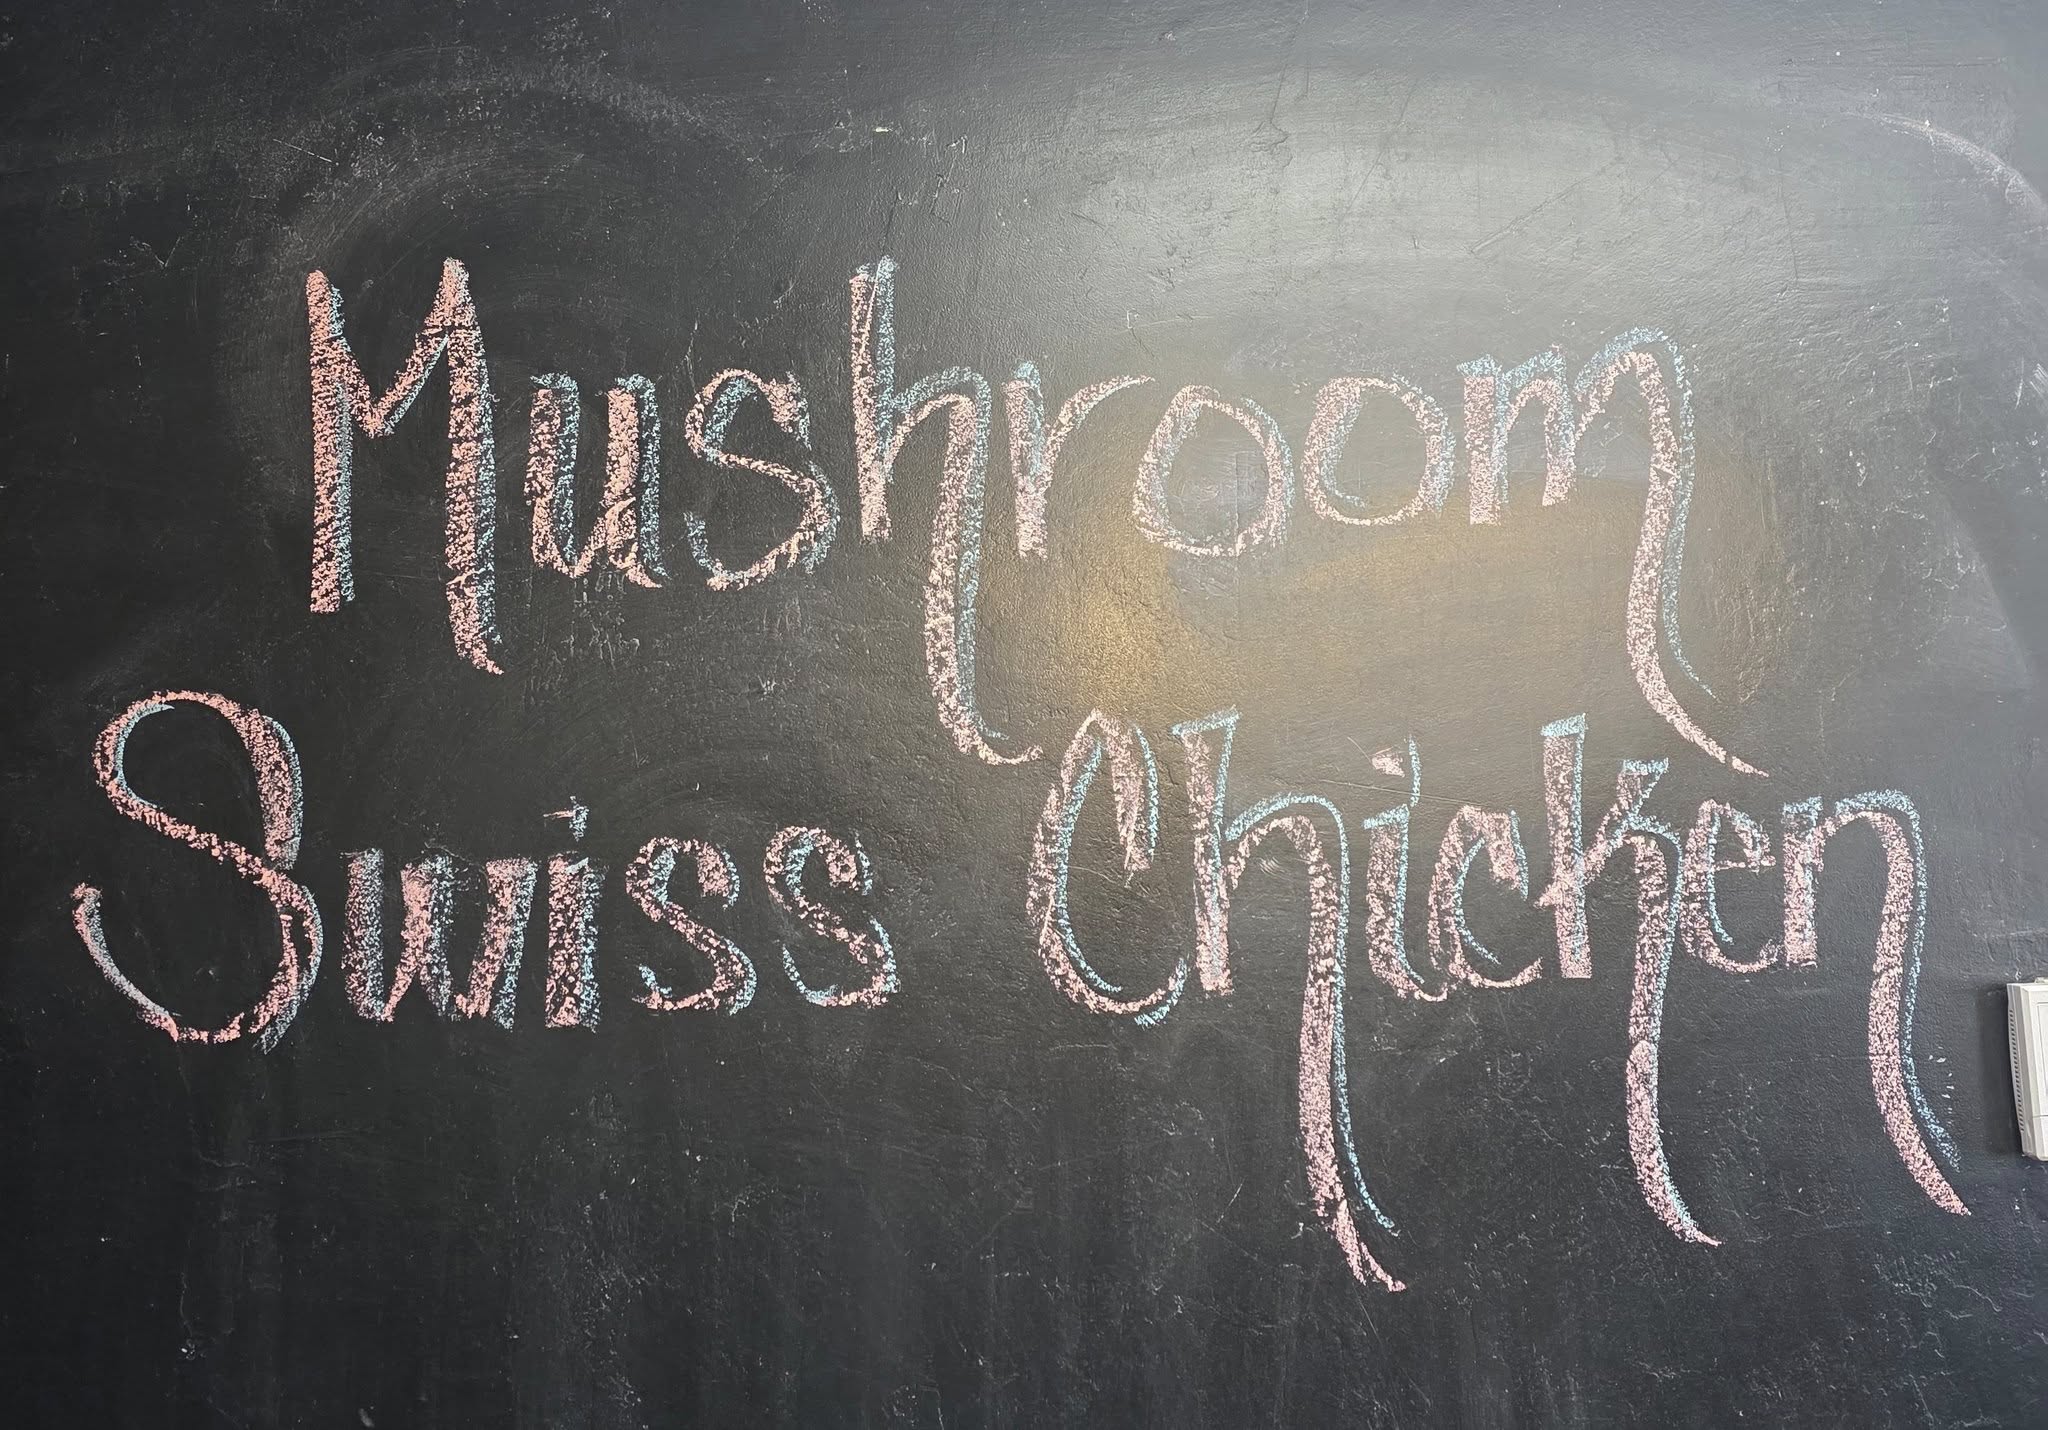 Mushroom
Swiss Chicken